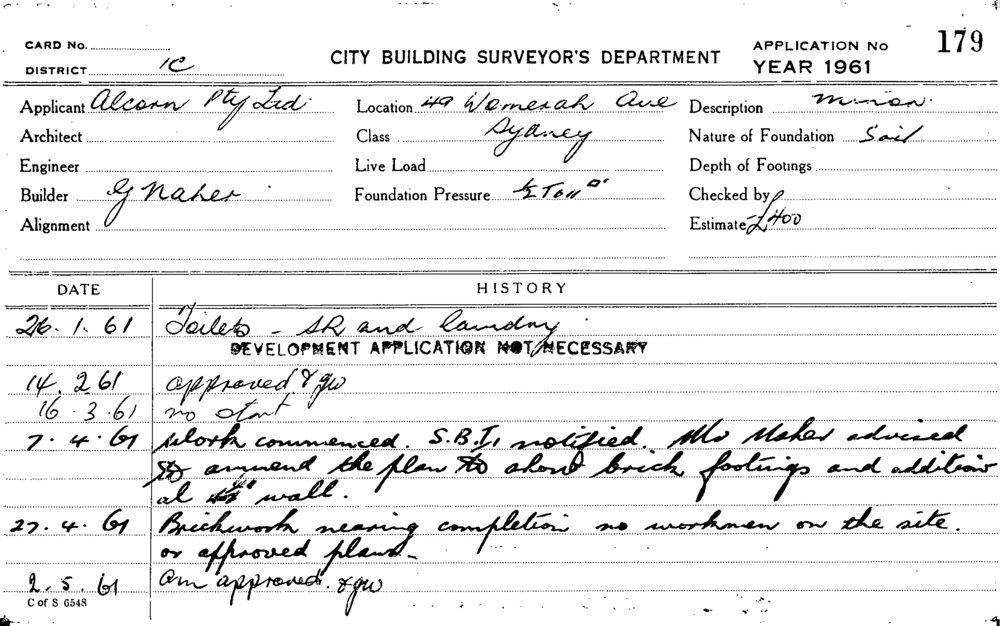 CARD No.
DISTRICT 1C
CITY BUILDING SURVEYOR'S DEPARTMENT
APPLICATION No 179
YEAR 1961
Applicant Alcorn Pty Ltd. Location 49 Womerah Ave Description minor.
Architect Class Sydney Nature of Foundation Soil
Engineer Live Load Depth of Footings
Builder G Maher Foundation Pressure ½ Ton □' Checked by
Alignment Estimate £400
DATE HISTORY
26.1.61 Toilets - SR and laundry
DEVELOPMENT APPLICATION NOT NECESSARY
14.2.61 approved
16.3.61 no start
7.4.61 Work commenced. S.B.I. notified. Mr Maher advised
to ammend the plan to show brick footings and addition
al wall.
27.4.61 Brickwork nearing completion no workmen on the site.
or approved plans-
2.5.61 am approved.
C of S 6548